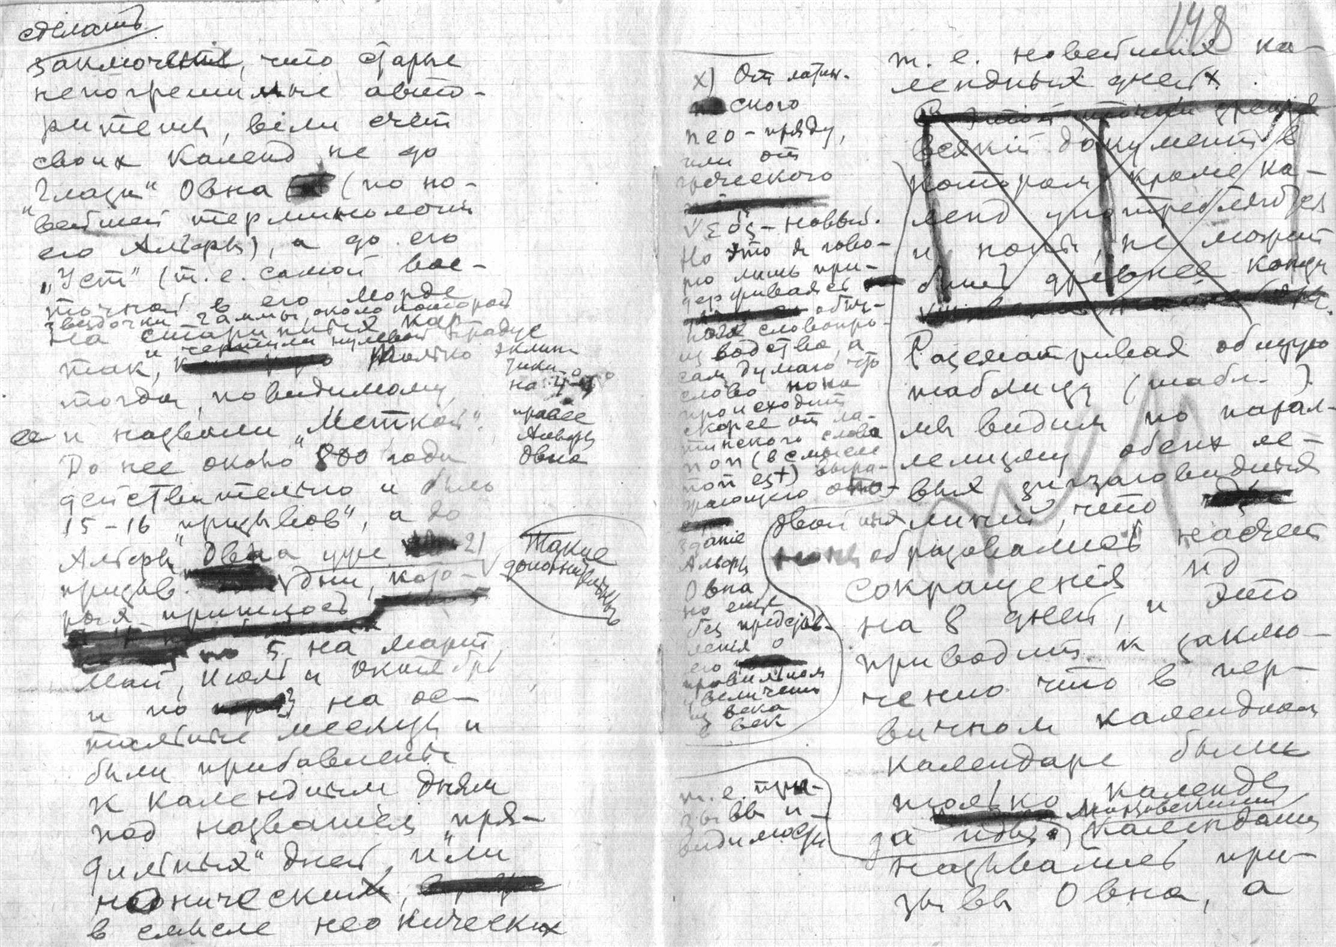 сделать
заключение, что старые
непогрешимые авто-
ритеты, вели счет
своих Календ не до
"Глаза" Овна (по но-
вейшей терминологии
его Альфы), а до его
„Уст" (т. е. самой вос-
точной в его морде
звездочки гаммы, около которой
на старинных кар-
так, и чертили нулевой градус
эклип-
тики
Только
тогда, повидимому,
ее и назвали „Меткой".
правее
Альфы
Овна
До нее около 800 года
действительно и было
15-16 призывов", а до
Альфы Овна уже 21
призыв. дни, кото-
рые пришлось
по 5 на март,
Май, Июль и Октябрь
и по 3 на ос-
тальные месяцы и
были прибавлены
к календным дням
под названием пря-
дильных" дней, или
неонических,
в смысле неонических
Такие
дополнительные
148
х) От латин-
ского
нео-пряду,
или от
греческого
νεος - новый.
Но это я гово-
рю лишь при-
держиваясь
обыч-
ного словопро-
изводства, а
сам думаю что
слово нона
происходит
скорее от ла-
тинского слова
non (в смысле
non est) выра-
жающего
Альфы
Овна
но еще
без представ-
ления о
его
увеличении
из века
в век
т. е. при-
зывы и
видимости
т. е. новейших ка-
лендных дней х
С этой точки зрения
всякий документ в
котором кроме ка-
ленд употребляются
и ноны, не может
быть древнее конца
Рассматривая общую
таблицу (табл. )
мы видим по парал-
лелизму обеих ле-
вых зигзаговидных
двойных линий, что
образовались насчет
сокращения ид
на 8 дней, и это
приводит к заклю-
чению что в пер-
вичном календном
календаре были
только календы
да иды.) (Календами
назывались при-
зывы Овна, а